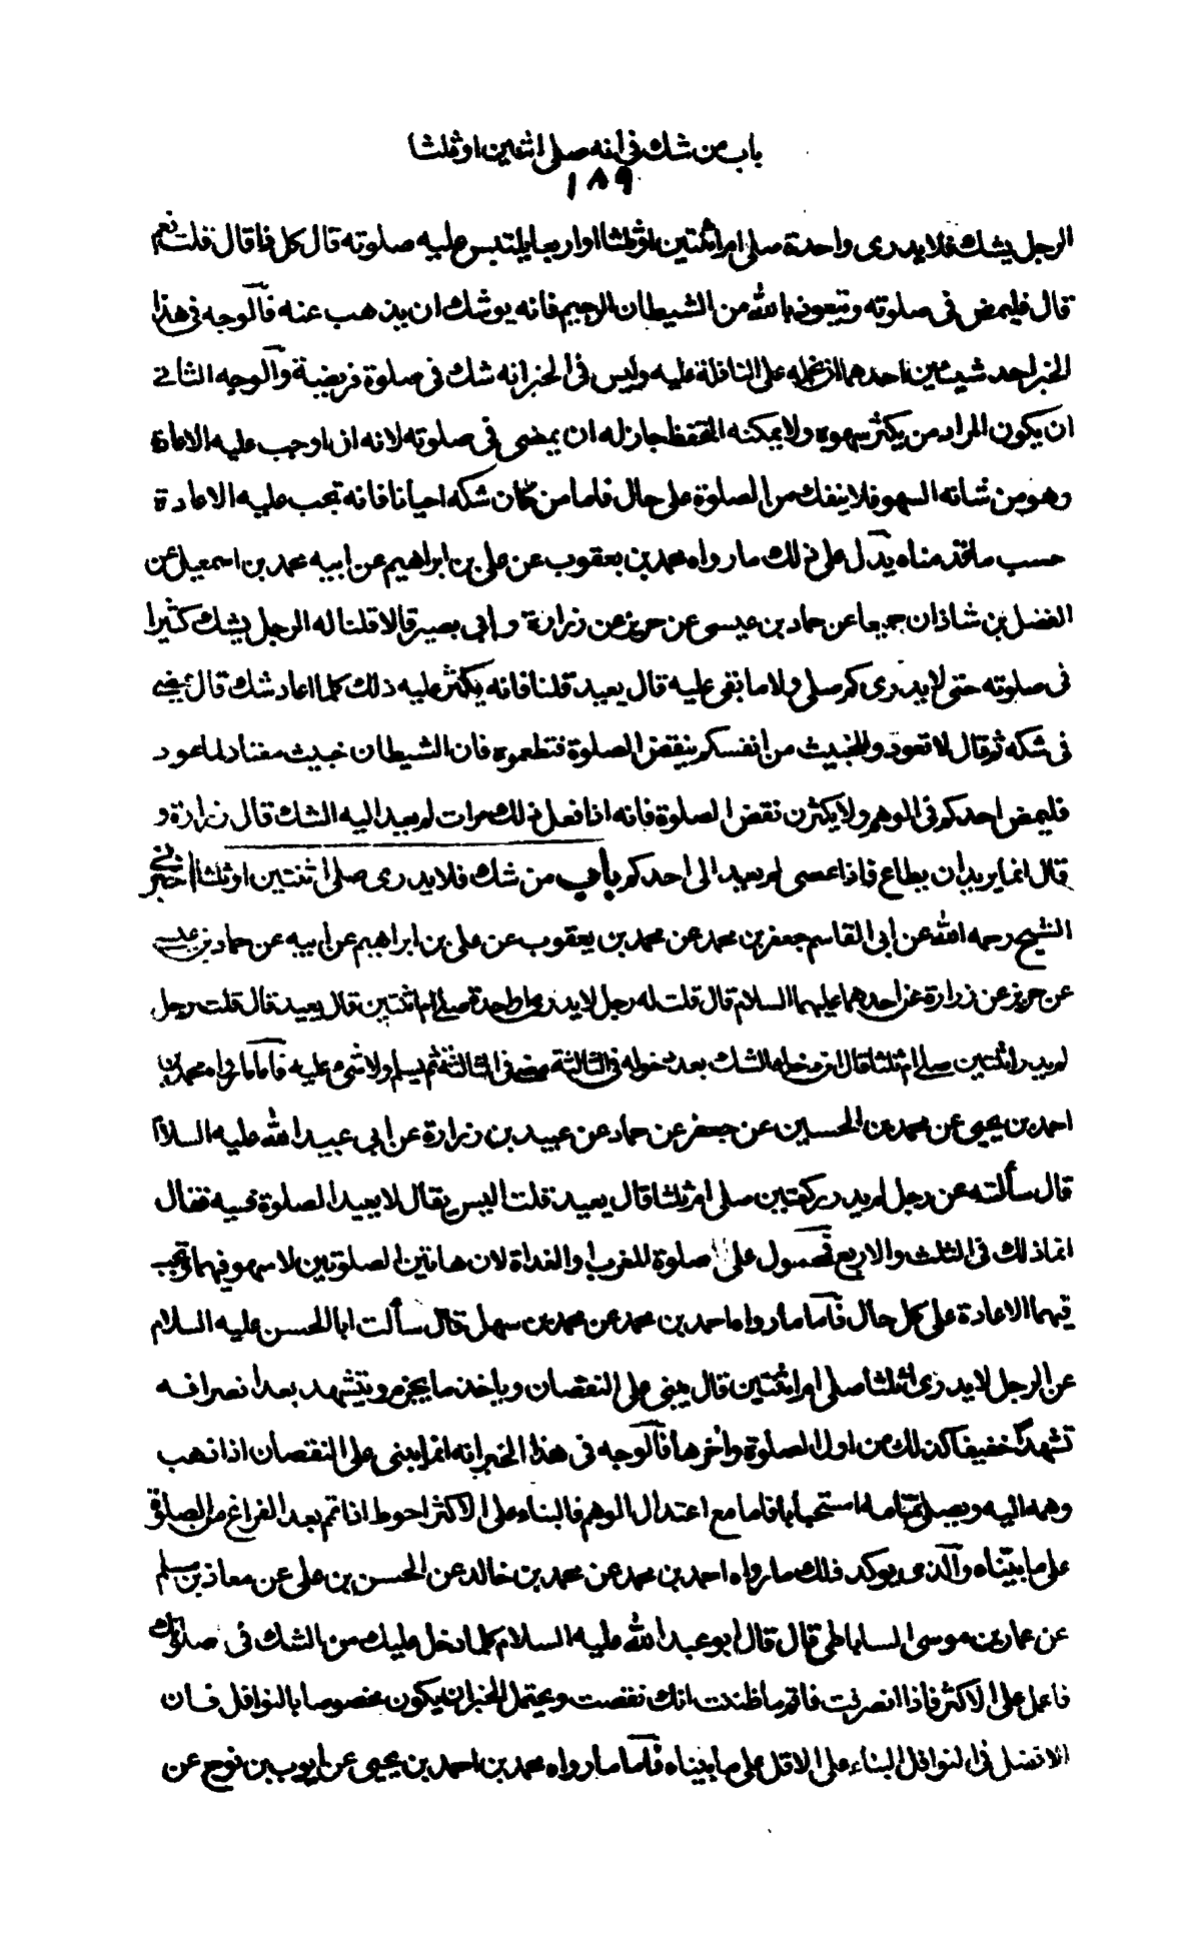 باب من شك فى أنه صلى اثنتين او ثلثا
١٨٩
الرجل يشك فلا يدرى واحدة صلى ام اثنتين او ثلثا او اربعا يلتبس عليه صلوته قال كل ذا قال قلت نعم
قال فليمض فى صلوته ويتعوذ بالله من الشيطان الرجيم فانه يوشك ان يذهب عنه فالوجه فى هذا
الخبر احد شيئين احدهما ان نحمله على النافلة عليه وليس فى الخبر انه شك فى صلوة فريضة والوجه الثانى
ان يكون المراد من يكثر سهوه ولا يمكنه التحفظ جاز له ان يمضى فى صلوته لانه ان اوجب عليه الاعادة
وهو من شانه السهو فلا ينفك من الصلوة على حال فاما من كان شكه احيانا فانه تجب عليه الاعادة
حسب ما قدمناه يدل على ذلك ما رواه محمد بن يعقوب عن على بن ابراهيم عن ابيه محمد بن اسمعيل عن
الفضل بن شاذان جميعا عن حماد بن عيسى عن حريز عن زرارة و ابى بصير قالا قلنا له الرجل يشك كثيرا
فى صلوته حتى لا يدرى كم صلى ولا ما بقى عليه قال يعيد قلنا فانه يكثر عليه ذلك كلما اعاد شك قال يمضى
فى شكه ثم قال لا تعودوا الخبيث من انفسكم بنقض الصلوة فتطعموه فان الشيطان خبيث معتاد لما عود
فليمض احدكم فى الوهم ولا يكثرن نقض الصلوة فانه اذا فعل ذلك مرات لم يعد اليه الشك قال زرارة و
قال انما يريد ان يطاع فاذا عصى لم يعد الى احدكم باب من شك فلا يدرى صلى اثنتين او ثلثا اخبرنى
الشيخ رحمه الله عن ابى القاسم جعفر بن محمد عن محمد بن يعقوب عن على بن ابراهيم عن ابيه عن حماد بن عيسى
عن حريز عن زرارة عن احدهما عليهما السلام قال قلت له رجل لا يدرى واحدة صلى ام اثنتين قال يعيد قال قلت رجل
لم يدر اثنتين صلى ام ثلثا قال ان دخله الشك بعد دخوله فى الثالثة مضى فى الثالثة ثم يسلم ولا شىء عليه فاما ما رواه محمد بن
احمد بن يحيى عن محمد بن الحسين عن جعفر عن حماد عن عبيد بن زرارة عن ابى عبيد الله عليه السلام
قال سألته عن رجل لم يدر ركعتين صلى ام ثلثا قال يعيد قلت اليس يقال لا يعيد الصلوة فقيه فقال
انما ذلك فى الثلث والاربع فمحمول على صلوة المغرب او الغداة لان هاتين الصلوتين لا سهو فيهما وتجب
فيهما الاعادة على كل حال فاما ما رواه احمد بن محمد عن محمد بن سهل قال سألت ابا الحسن عليه السلام
عن الرجل لا يدرى اثلثا صلى ام اثنتين قال يبنى على النقصان وياخذ ما يجزم ويتشهد بعد انصرافه
تشهدا خفيفا كذلك من اول الصلوة واخرها فالوجه فى هذا الخبر انه انما يبنى على النقصان اذا ذهب
وهمه اليه ويصلى تمامه استحبابا فاما مع اعتدال الوهم فالبناء على الاكثر احوط اذا تم بعد الفراغ من الصلوة
على ما بيناه والذى يوكد ذلك ما رواه احمد بن محمد عن محمد بن خالد عن الحسن بن على عن معاذ بن مسلم
عن عمار بن موسى الساباطى قال قال ابو عبد الله عليه السلام كلما دخل عليك من الشك فى صلوتك
فاعمل على الاكثر فاذا انصرفت فاتم ما ظننت انك نقصت ويحتمل الخبر ان يكون مخصوصا بالنوافل فان
الافضل فى النوافل البناء على الاقل على ما بيناه فاما ما رواه محمد بن احمد بن يحيى عن ايوب بن نوح عن